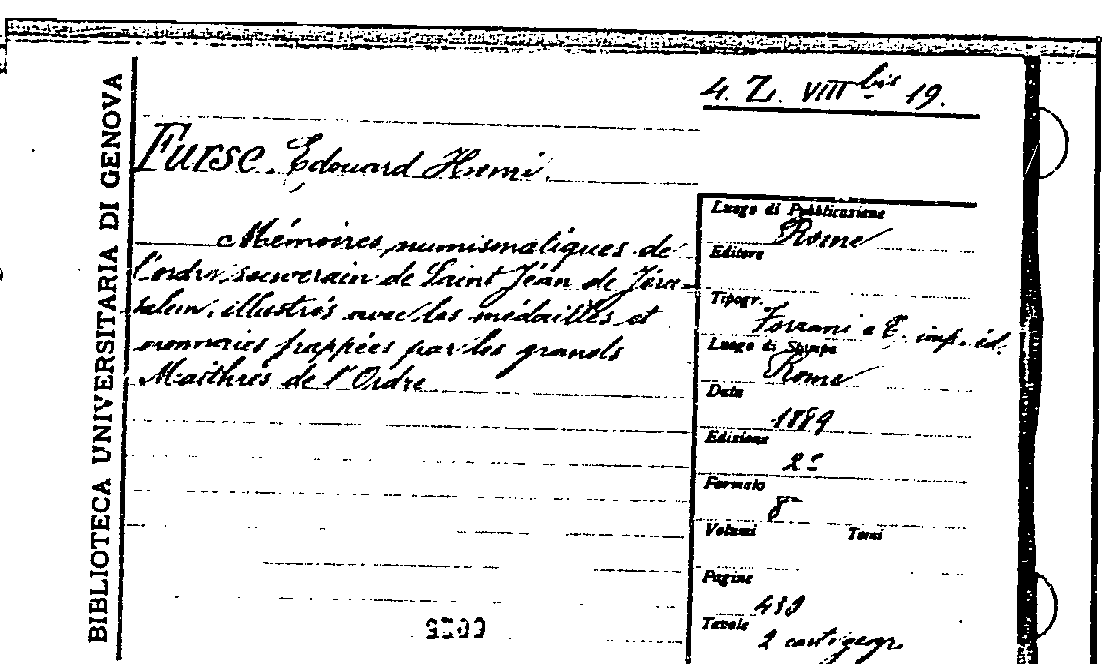 BIBLIOTECA UNIVERSITARIA DI GENOVA
4. Z. VIII bis 19.
Furse. Edouard Henri.
Mémoires numismatiques de
l'ordre souverain de Saint Jéan de Jéru-
salem, illustrés avec les médailles et
monnaies frappées par les grands
Maithres de l'Ordre
Luogo di Pubblicazione
Rome
Editore
Tipogr.
Forzani e C. imp. éd.
Luogo di Stampa
Rome
Data
1889
Edizione
2ª
Formato
8°
Volumi Tomi
Pagine
Tavole
2 cart.